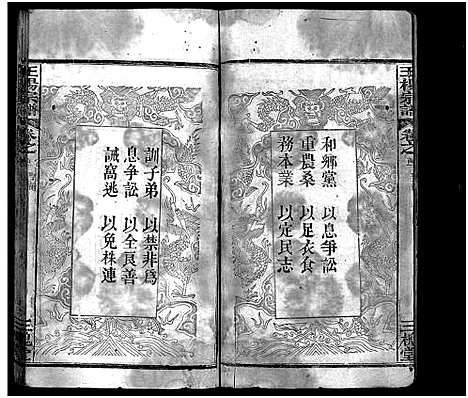 和鄉黨 以息爭訟
重農桑 以足衣食
務本業 以定民志
訓子弟 以禁非為
息爭訟 以全良善
誡窩逃 以免株連